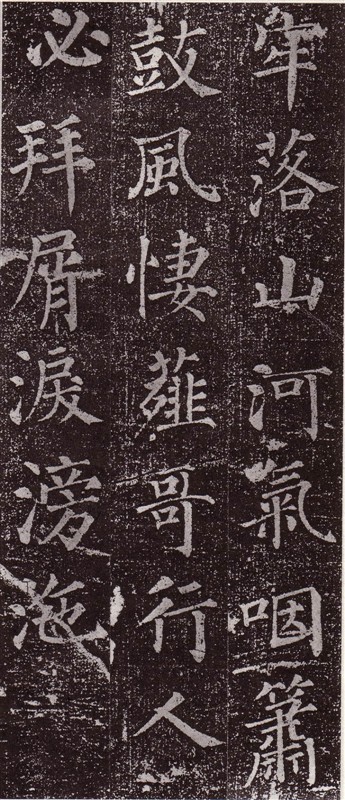 牢落山河氣咽簫
鼓風悽薤哥行人
必拜屑淚滂沲